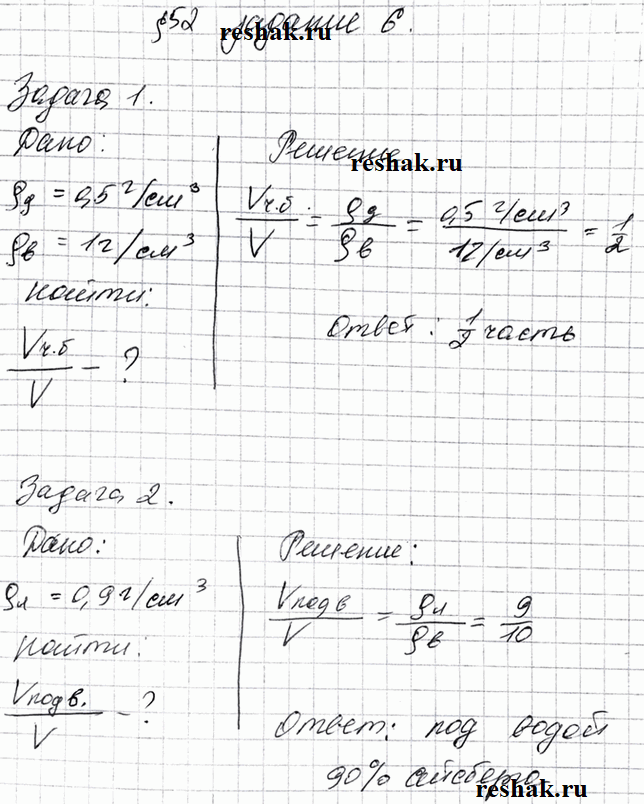 §52 задание 6.
reshak.ru
Задача 1.
Дано:
ρд = 0,5 г/см³
ρв = 1 г/см³
Найти:
Vч.б/V - ?
Решение
reshak.ru
Vч.б/V = ρд/ρв = 0,5 г/см³ / 1 г/см³ = 1/2
Ответ: 1/2 часть
Задача 2.
Дано:
ρл = 0,9 г/см³
Найти.
Vподв./V - ?
Решение:
Vподв/V = ρл/ρв = 9/10
Ответ: под водой
90% айсберга
reshak.ru